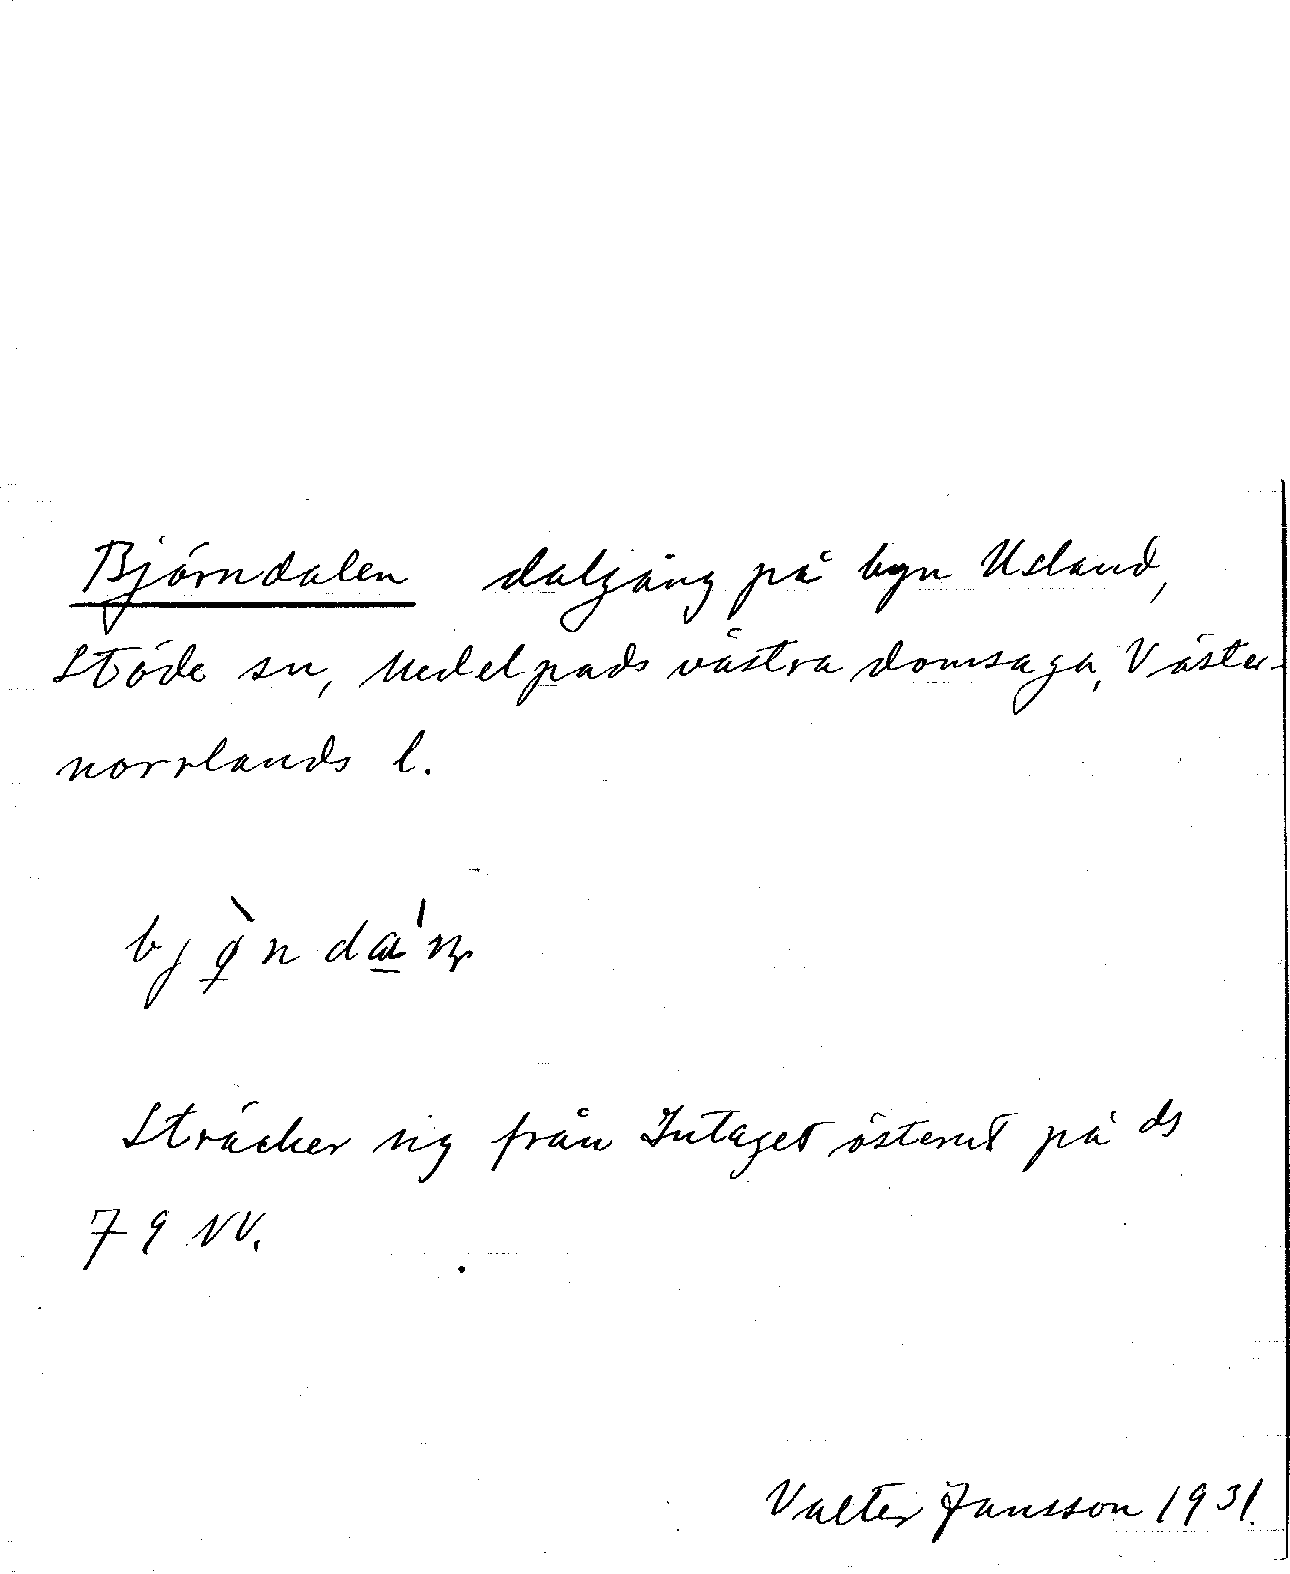 Björndalen dalgång på byn Usland,
Stöde sn, Medelpads västra domsaga, Väster-
norrlands l.
Sträcker sig från Intaget österut på ds
79 NV.
Valter Jansson 1931.